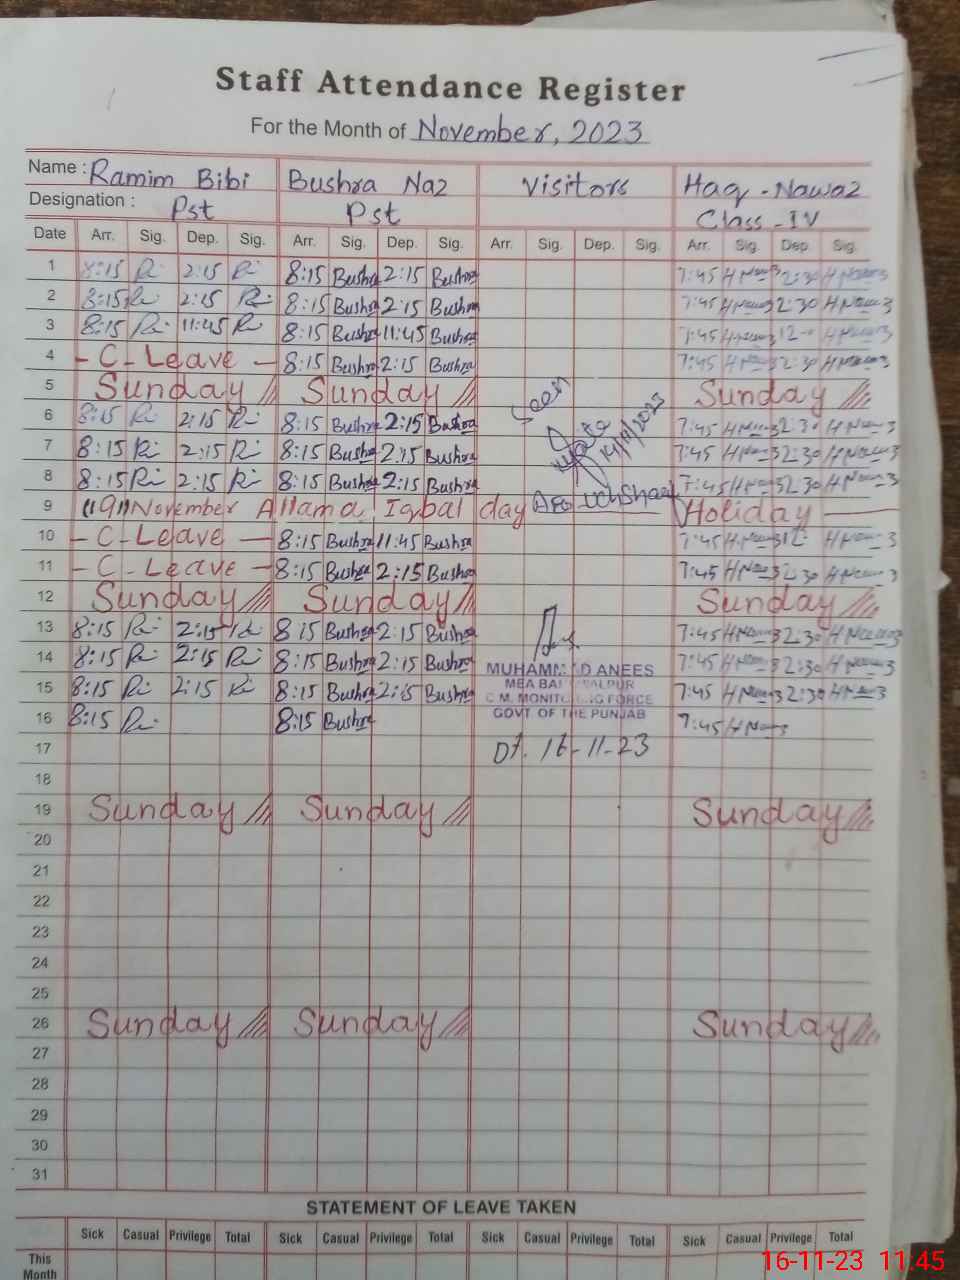 Staff Attendance Register
For the Month of November, 2023
Name : Ramim Bibi Bushra Naz Visitors Haq - Nawaz
Designation : Pst Pst Class - IV
Date Arr. Sig. Dep. Sig. Arr. Sig. Dep. Sig. Arr. Sig. Dep. Sig. Arr. Sig. Dep. Sig.
1 8:15 2:15 8:15 Bushra 2:15 Bushra 7:45 2:30
2 8:15 2:15 8:15 Bushra 2:15 Bushra 7:45 2:30
3 8:15 11:45 8:15 Bushra 11:45 Bushra 7:45 12
4 - C - Leave - 8:15 Bushra 2:15 Bushra 7:45 2:30
5 Sunday Sunday Sunday
Seen
6 8:15 2:15 8:15 Bushra 2:15 Bushra 7:45 2:30
7 8:15 2:15 8:15 Bushra 2:15 Bushra 7:45 2:30
8 8:15 2:15 8:15 Bushra 2:15 Bushra 7:45 2:30
9 "9" November Allama Iqbal day Holiday
10 - C - Leave - 8:15 Bushra 11:45 Bushra 7:45 12
11 - C - Leave - 8:15 Bushra 2:15 Bushra 7:45 2:30
12 Sunday Sunday Sunday
13 8:15 2:15 8:15 Bushra 2:15 Bushra 7:45 2:30
14 8:15 2:15 8:15 Bushra 2:15 Bushra 7:45 2:30
MUHAMMAD ANEES
15 8:15 2:15 8:15 Bushra 2:15 Bushra 7:45 2:30
MEA BAHAWALPUR
C.M. MONITORING FORCE
GOVT. OF THE PUNJAB
16 8:15 8:15 Bushra 7:45
17 Dt. 16-11-23
18
19 Sunday Sunday Sunday
20
21
22
23
24
25
26 Sunday Sunday Sunday
27
28
29
30
31
STATEMENT OF LEAVE TAKEN
Sick Casual Privilege Total Sick Casual Privilege Total Sick Casual Privilege Total Sick Casual Privilege Total
This Month
16-11-23 11:45